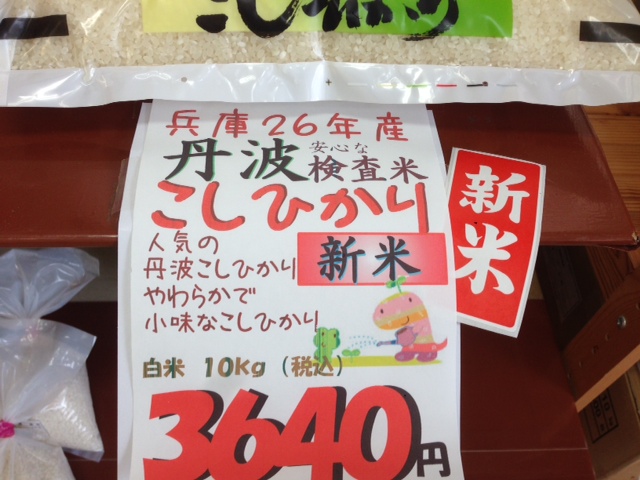 こしひかり
兵庫26年産
丹波 安心な 検査米
こしひかり
人気の
新米
丹波こしひかり
やわらかで
小味なこしひかり
白米 10Kg (税込)
3640円
新米